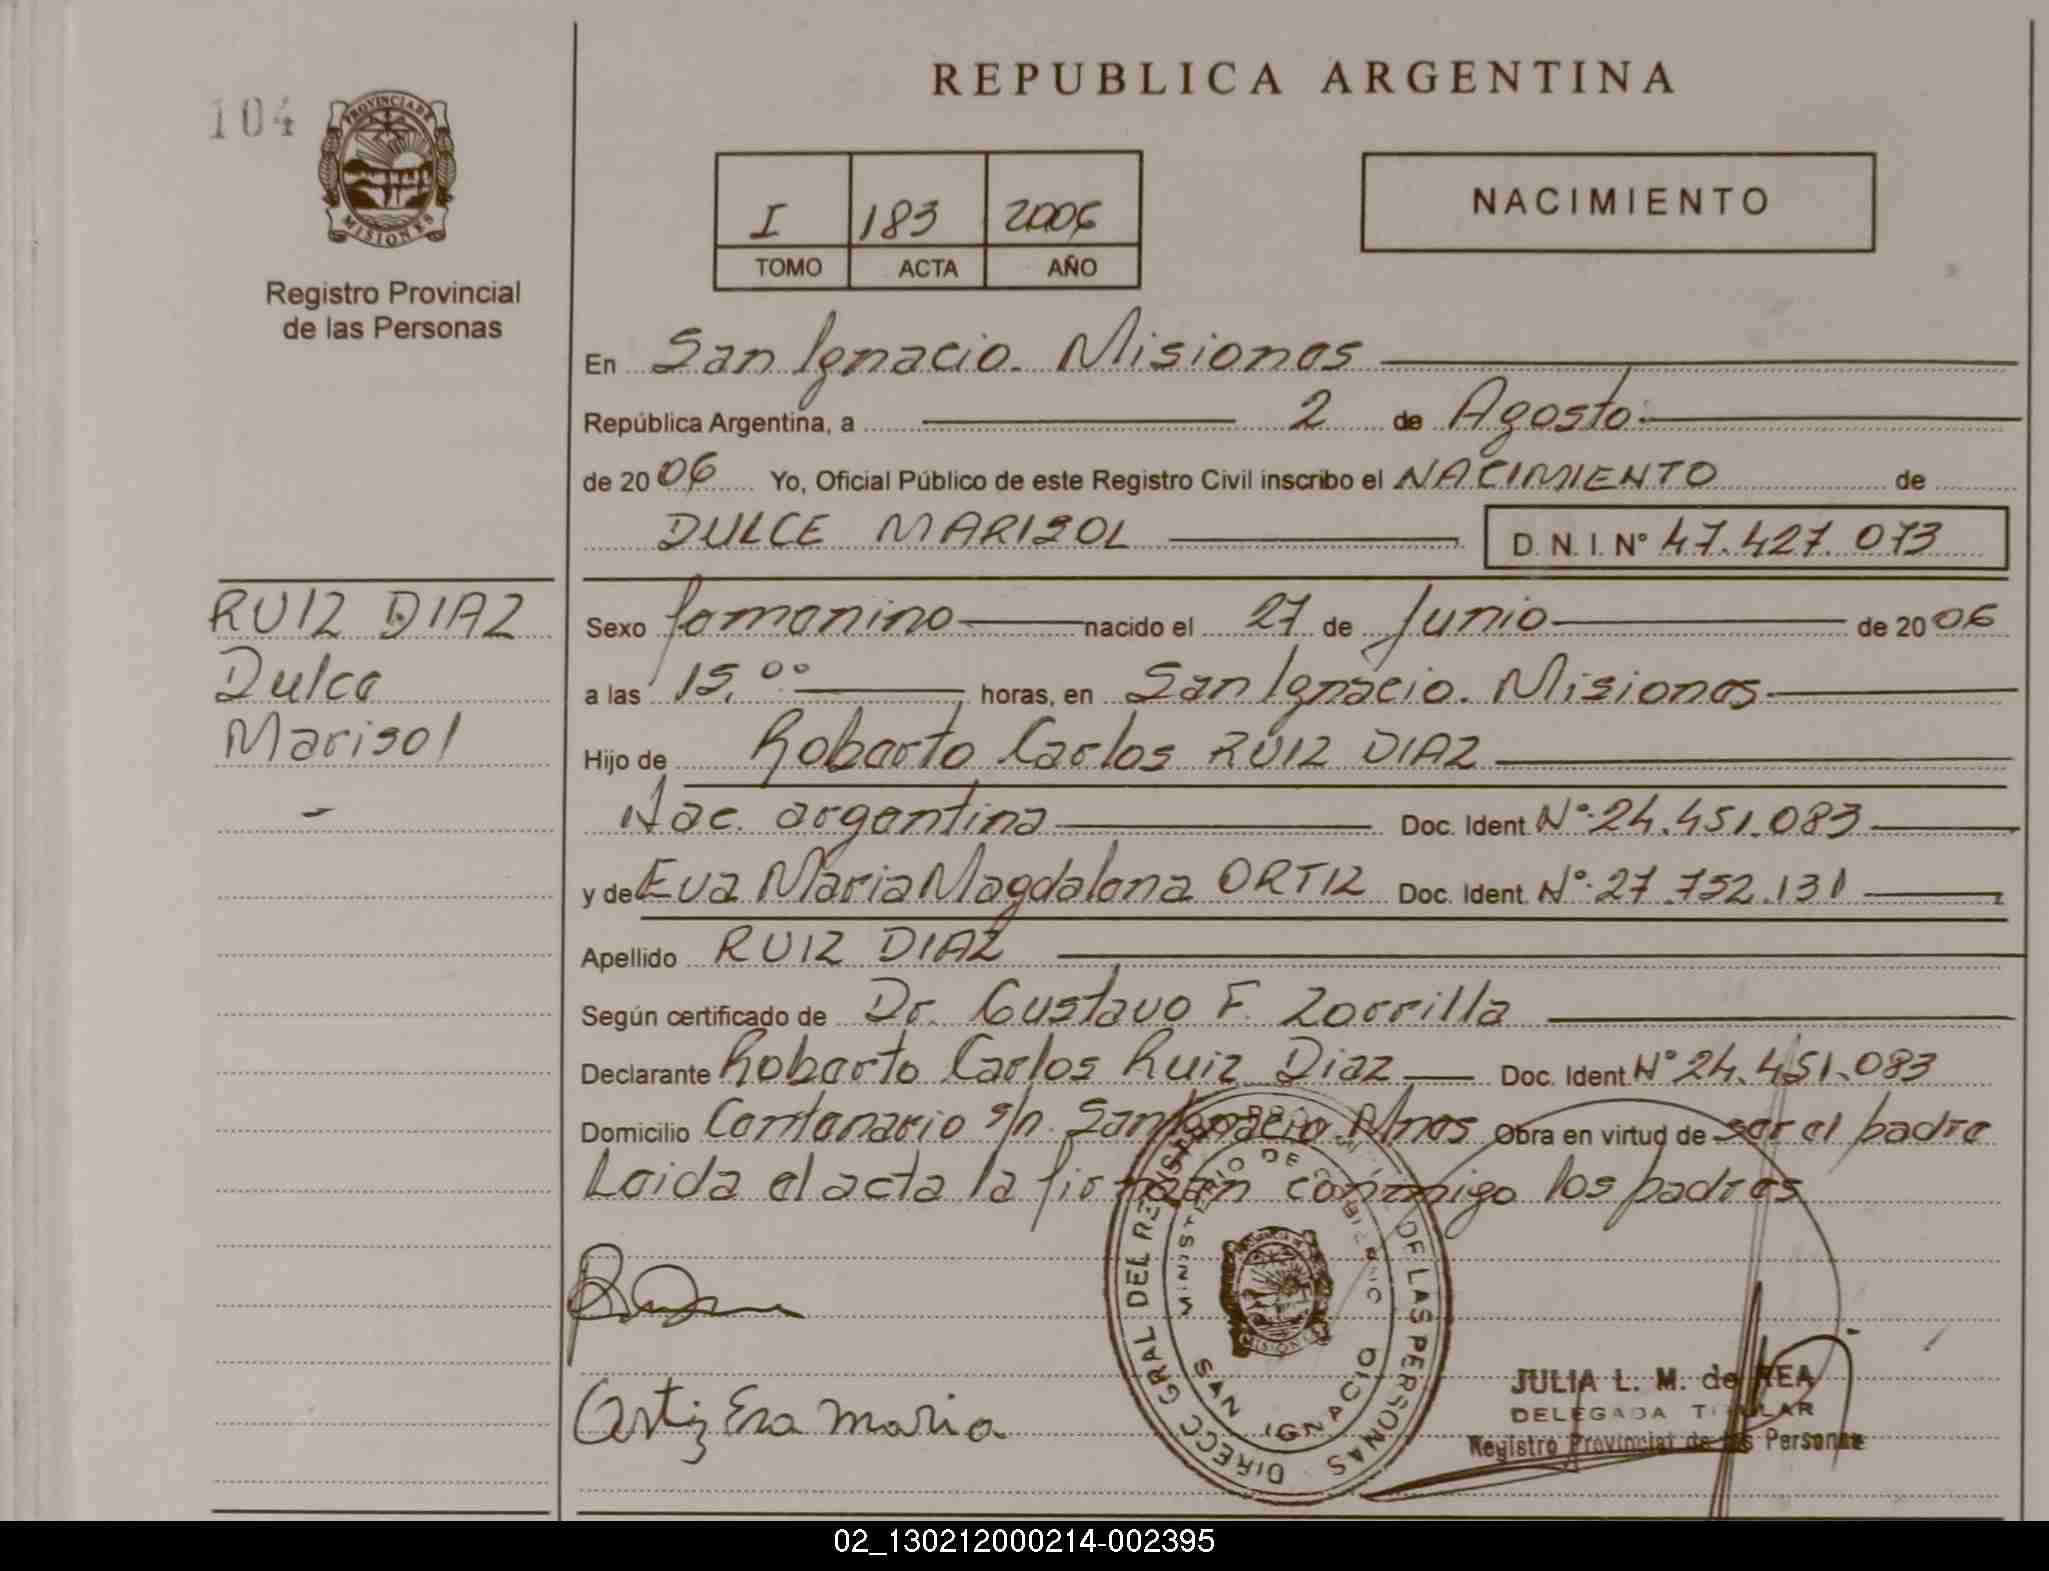 REPUBLICA ARGENTINA
104
PROVINCIA DE
MISIONES
Registro Provincial
de las Personas
I 183 2006
TOMO ACTA AÑO
NACIMIENTO
En San Ignacio. Misiones
República Argentina, a 2 de Agosto
de 2006 Yo, Oficial Público de este Registro Civil inscribo el NACIMIENTO de
DULCE MARISOL D. N. I. N° 47.427.073
RUIZ DIAZ
Dulce
Marisol
Sexo femenino nacido el 27 de Junio de 2006
a las 15,°° horas, en San Ignacio. Misiones
Hijo de Roberto Carlos RUIZ DIAZ
Nac. argentina Doc. Ident. N° 24.451.083
y de Eva Maria Magdalena ORTIZ Doc. Ident. N° 27.752.131
Apellido RUIZ DIAZ
Según certificado de Dr. Gustavo F. Zorrilla
Declarante Roberto Carlos Ruiz Diaz Doc. Ident. N° 24.451.083
Domicilio Centenario s/n. San Ignacio Mnes Obra en virtud de ser el padre
Leida el acta la firman conmigo los padres
DIRECC GRAL DEL REGISTRO PROV. DE LAS PERSONAS
MINISTERIO DE GOBIERNO
SAN IGNACIO
MISIONES
Ortiz Eva maria
JULIA L. M. de REA
DELEGADA TITULAR
Registro Provincial de las Personas
02_130212000214-002395